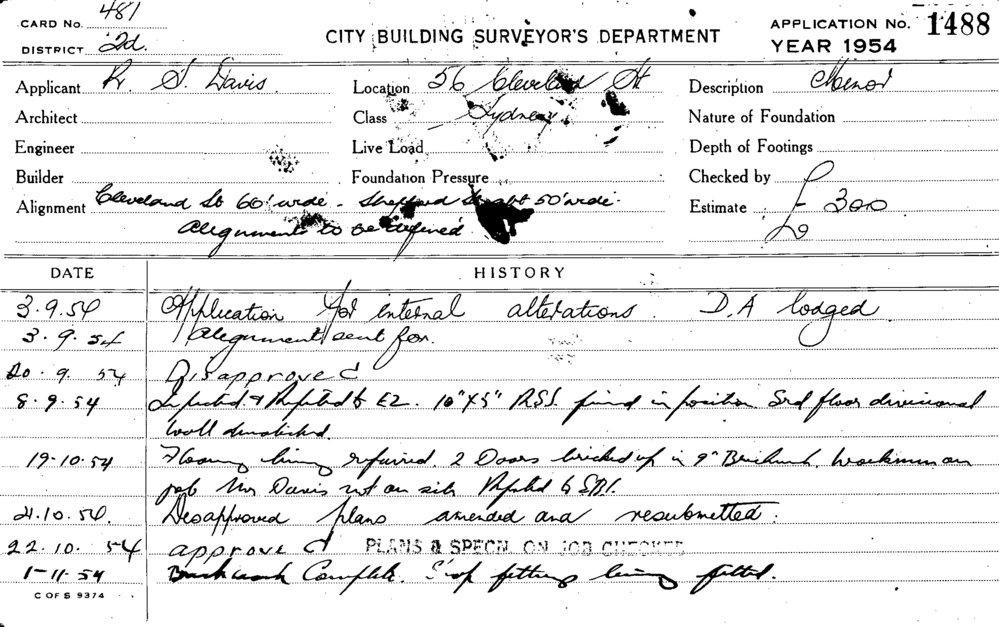 CARD No. 481
DISTRICT 2d.
CITY BUILDING SURVEYOR'S DEPARTMENT
APPLICATION No. 1488
YEAR 1954
Applicant R. S. Davis
Location 56 Cleveland St
Description Minor
Architect
Class Sydney
Nature of Foundation
Engineer
Live Load
Depth of Footings
Builder
Foundation Pressure
Checked by
Alignment Cleveland St 66' wide - Shepherd St abt 50' wide.
Estimate £ 300
Alignments to be defined
DATE HISTORY
3.9.54 Application for internal alterations. D.A lodged
3.9.54 Alignment sent for.
20.9.54 Disapproved
8.9.54 10"x5" R.S.J. in position 3rd floor divisional
wall demolished.
19-10-54 Flooring being repaired. 2 Doors bricked up in 9" Brickwork. Workmen on
job Mr Davis not on site
21.10.54. Disapproved plans amended and resubmitted.
22.10.54 approved PLANS & SPECN. ON JOB CHECKED
1-11-54 Brickwork Complete. Shop fittings being fitted.
C OF S 9374